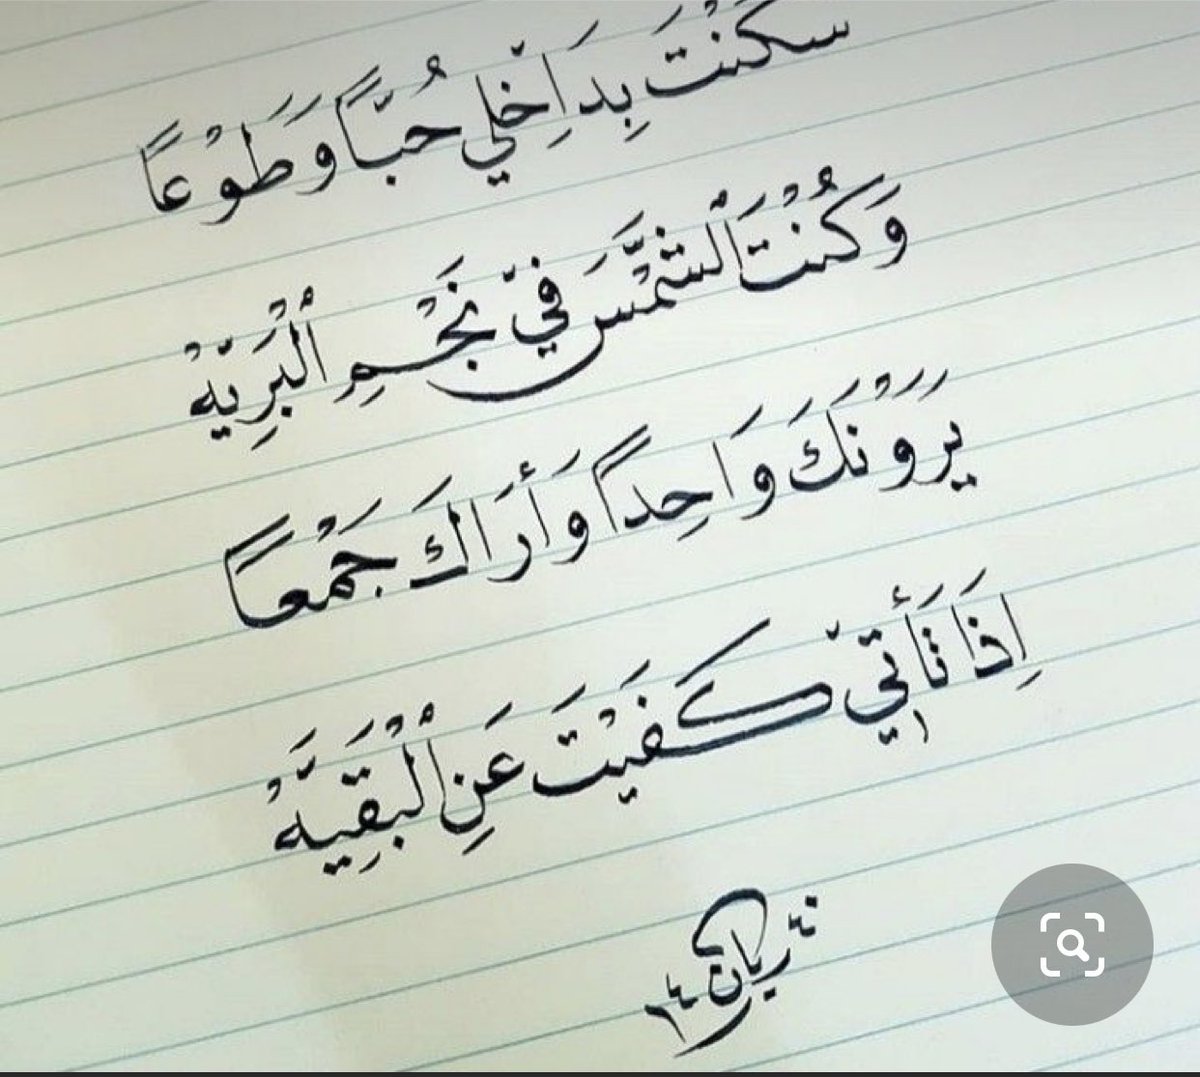 سَكَنْتَ بِدَاخِلِي حُبًّا وَطَوْعًا
وَكُنْتَ الْشَّمْسَ فِيْ نَجْمِ الْبَرِيّهْ
يَرَوْنَكَ وَاحِداً وَأَرَاكَ جَمْعاً
اِذَا تَأتِيْ كَفَيْتَ عَنِ الْبَقِيَّهْ
ريان